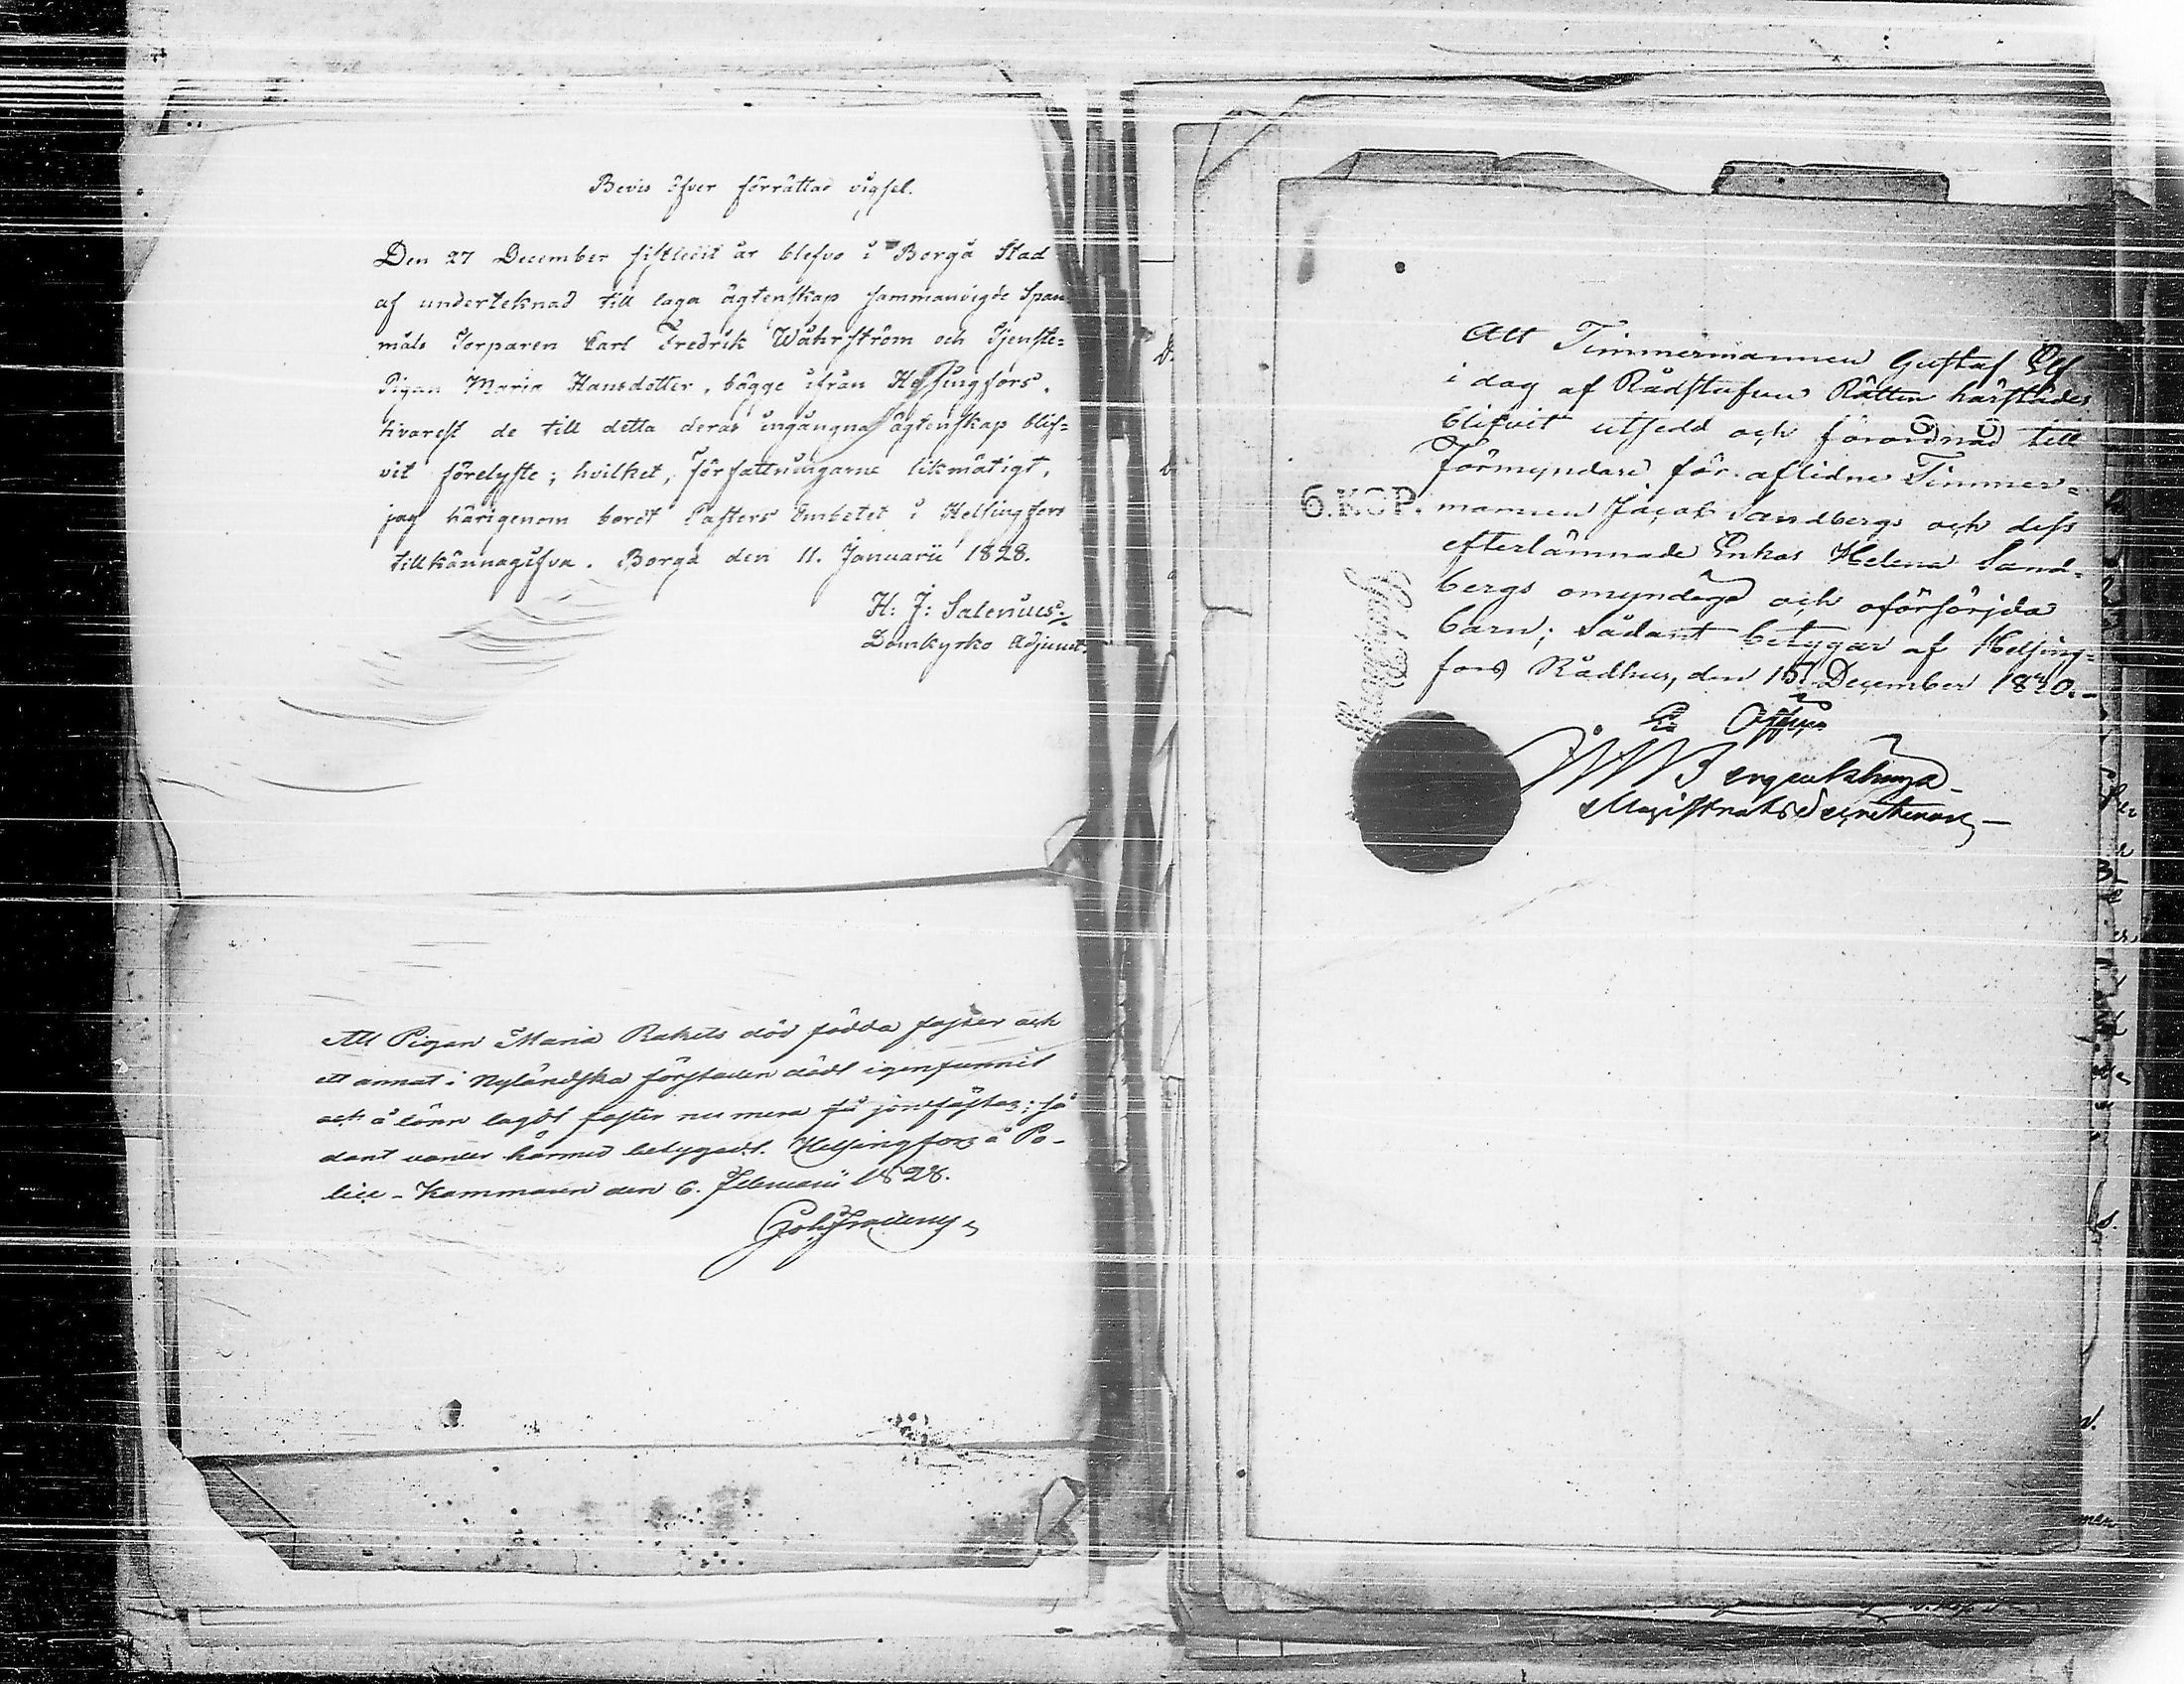 Bevis öfver förrättad vigsel.
Den 27 December sistledit år blefvo i Borgå Stad
af underteknad till laga ägtenskap sammanvigde Span
måls Torparen Carl Fredrik Wåhrström och Tjenste=
Pigan Maria Hansdotter, bägge ifrån Helsingfors,
hvarest de till detta deras ingångna ägtenskap blif=
vit förelyste; hvilket, författningarne likmätigt,
jag härigenom bordt Pastors Embetet i Helsingfors
tillkännagifva. Borgå den 11. Januarii 1828.
H: J: Salenius
Domkyrko Adjunct.
Att Pigan Maria Rakels död födda foster och
ett annat i Nyländska förstaden dödt igenfunnit
och å lönn lagdt foster nu mera få jordfästas; så
dant varder härmed betygadt. Helsingfors å Po-
lice-Kammaren den 6. Februarii 1828.
Att Timmermannen Gustaf Elf
i dag af Rådstufvu Rätten härstädes
blifvit utsedd och förordnad till
Förmyndare för aflidne Timmer=
6.KOP. mannen Jacob Sandbergs och dess
efterlämnade Enkas Helena Sand=
bergs omyndiga och oförsörjda
barn; Sådant betygar af Helsing=
fors Rådhus, den 15 December 1830.
Ex Officio
Magistrats Secreterare